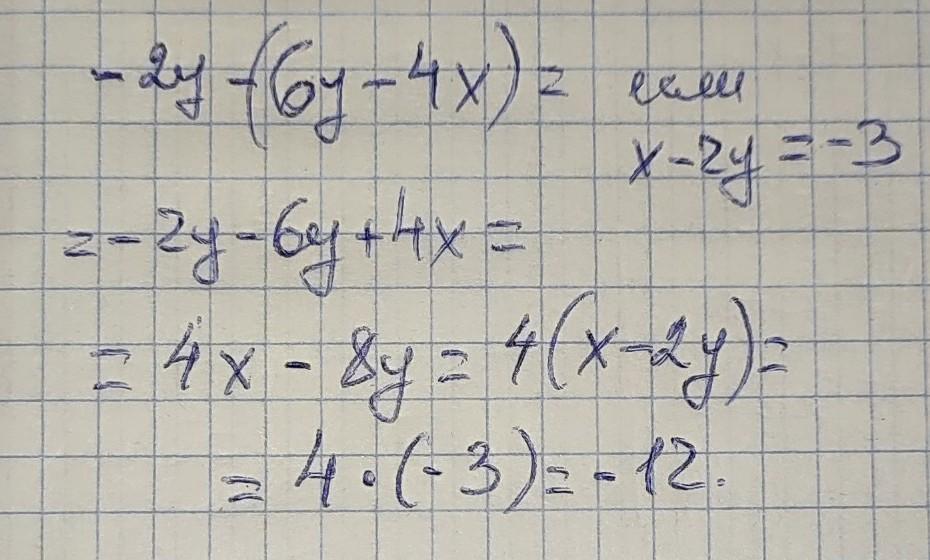 -2y-(6y-4x)= если
x-2y=-3
=-2y-6y+4x=
=4x-8y=4(x-2y)=
=4·(-3)=-12.